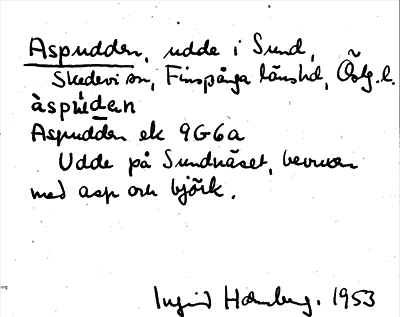 Aspudden, udde i Sund,
Skedevi sn, Finspånga länshd, Östg.l.
àspu̇den
Aspudden ek 9G6a
Udde på Sundnäset, bevuxen
med asp och björk.
Ingrid Holmberg. 1953